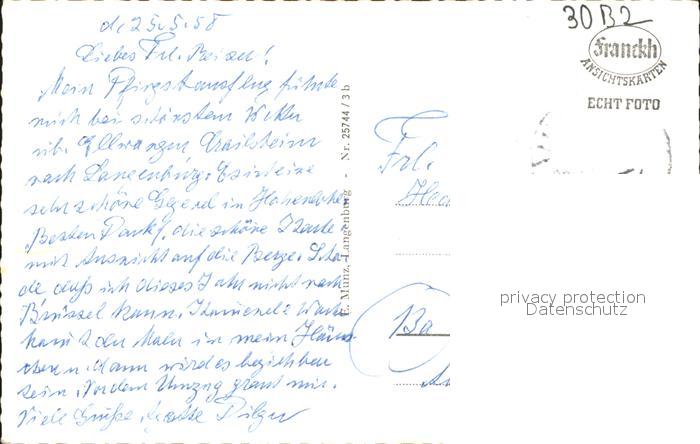 d. 25.5.58
Liebes Frl. Beisel!
Mein Pfingstausflug führte
mich bei schönstem Wetter
üb. Ellwangen Crailsheim
nach Langenburg. Es ist eine
sehr schöne Gegend in Hohenlohe.
Besten Dank f. die schöne Karte
mit Aussicht auf die Berge. Scha-
de daß ich dieses Jahr nicht nach
Brüssel kann.
kam i. den Maler in mein Häus-
chen u. dann wird es beziehbar
sein. Vor dem Umzug graut mir.
Viele Grüße Pilger
E. Munz, Langenburg - Nr. 25744 / 3 b
30 B2
Franckh
ANSICHTSKARTEN
ECHT FOTO
Frl.
Ba
privacy protection
Datenschutz